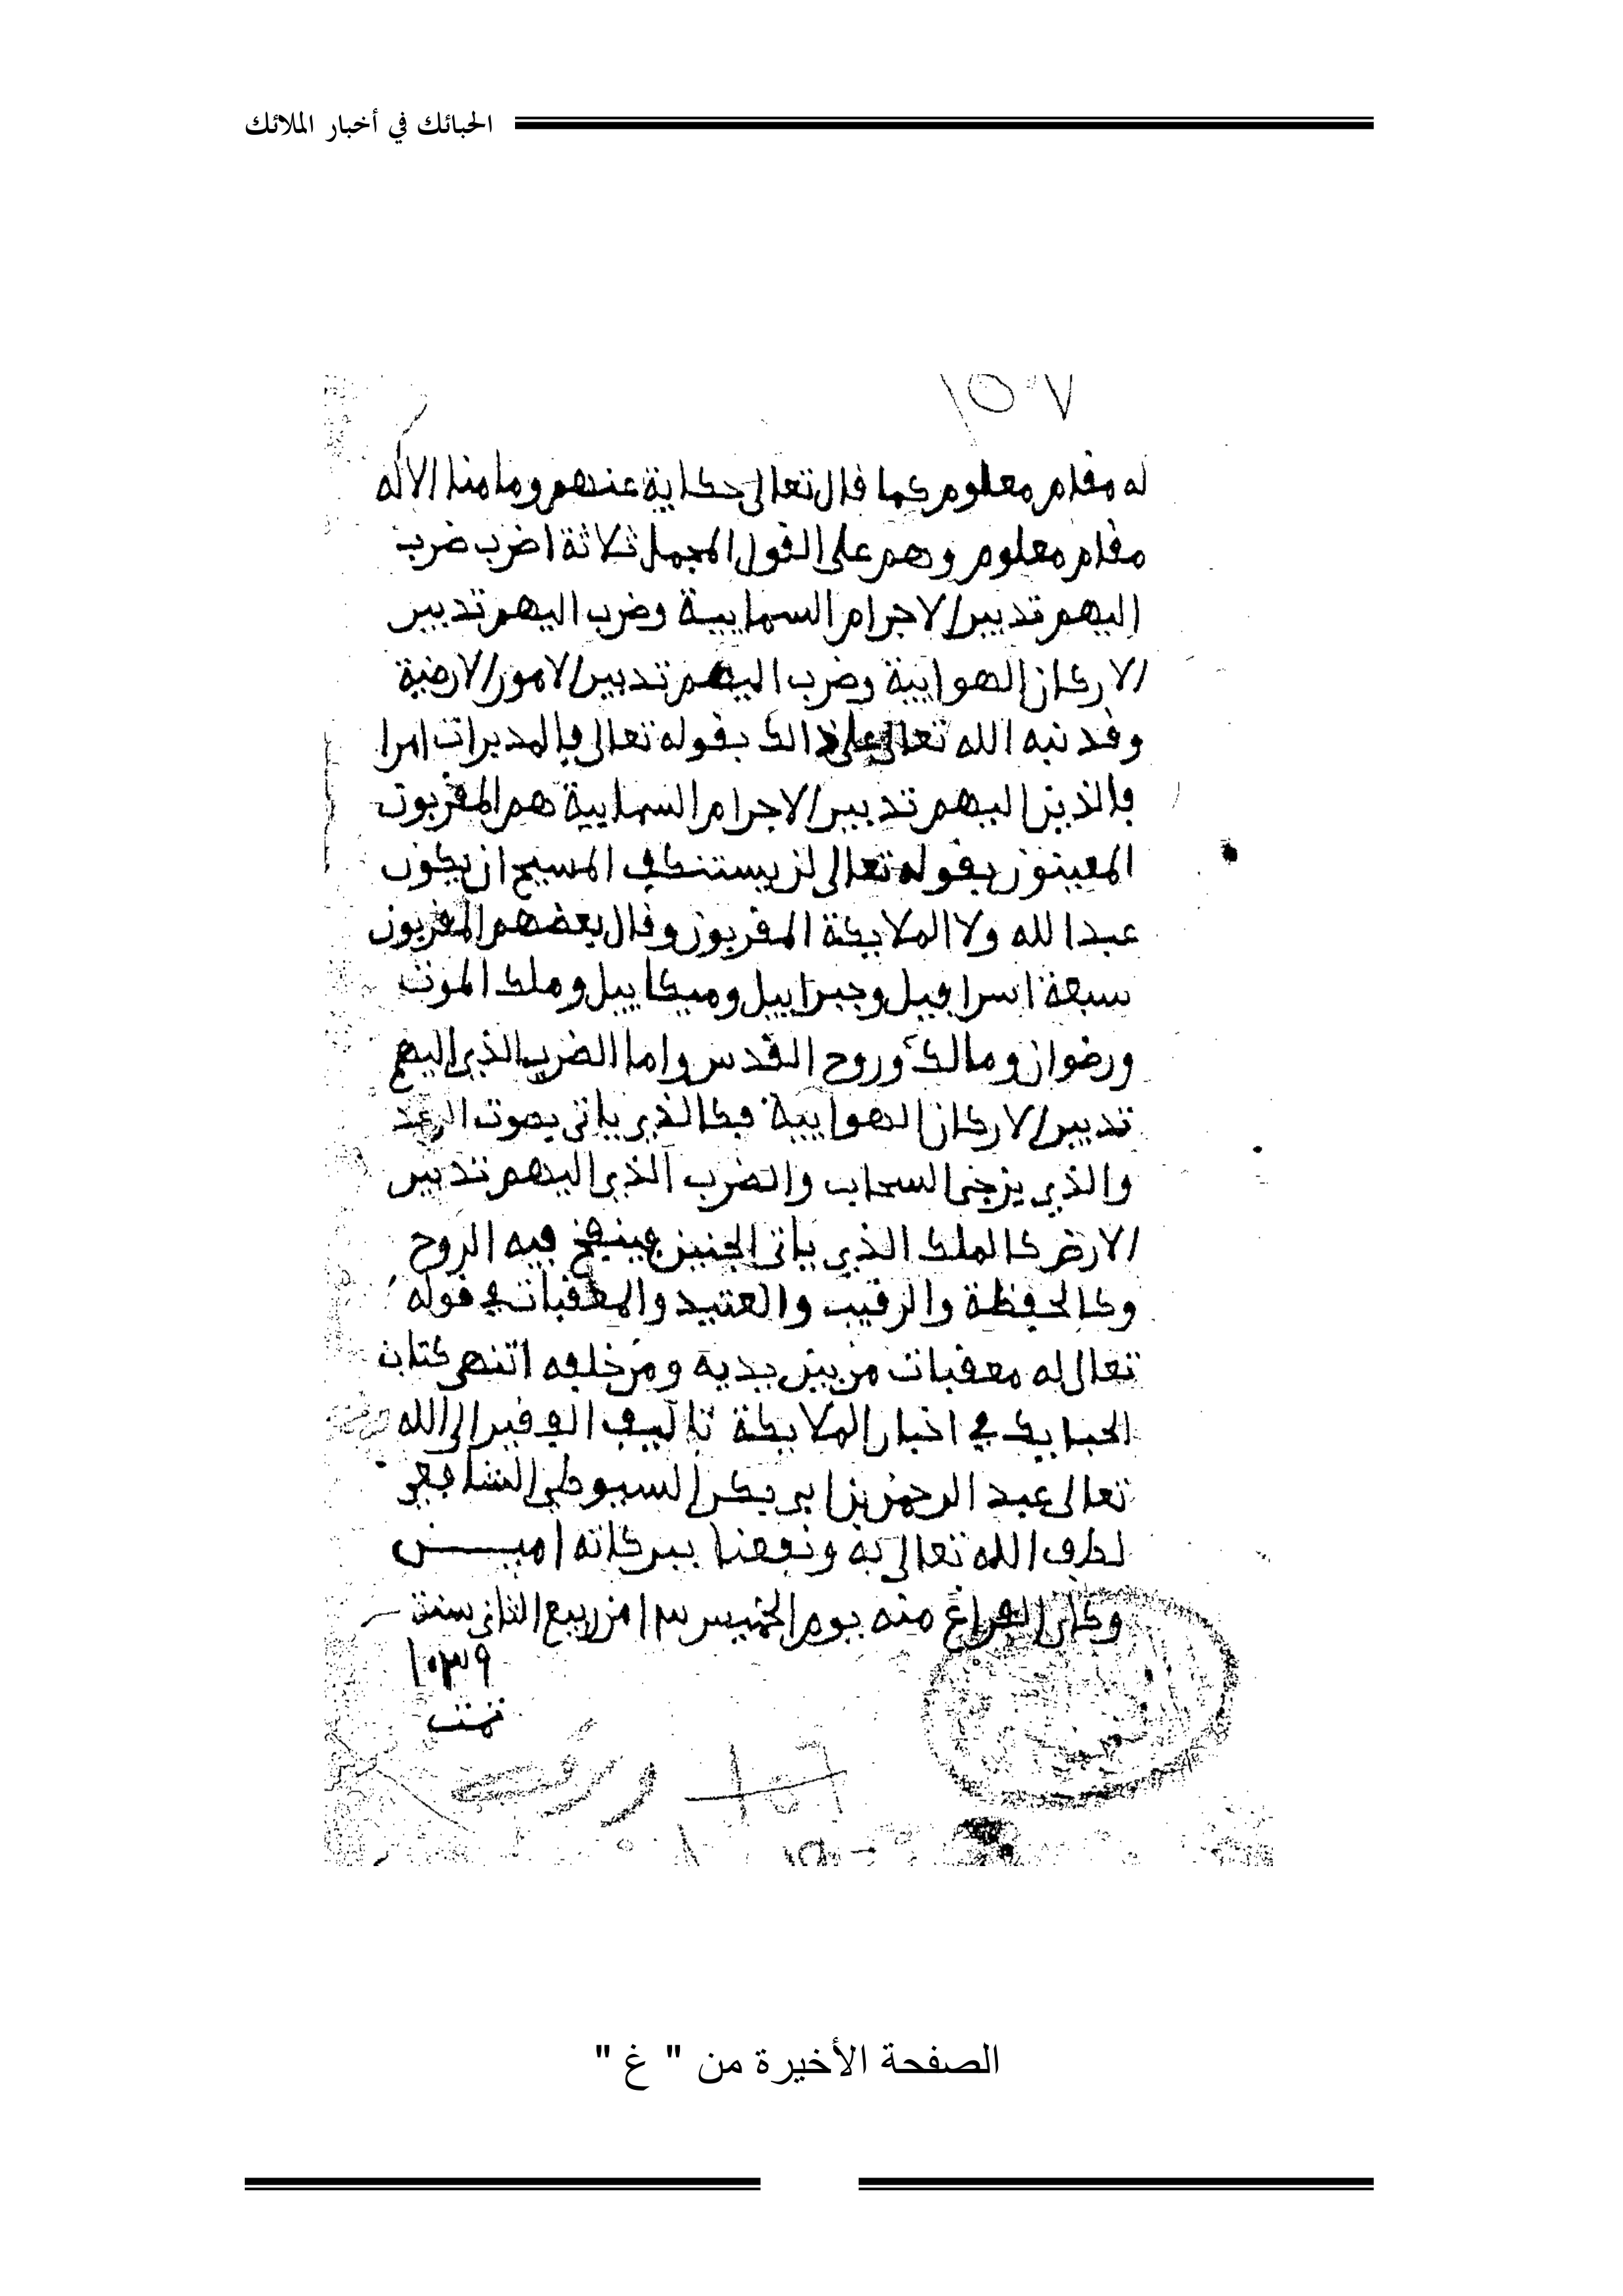 الحبائك في أخبار الملائك
١٥٧
له مقام معلوم كما قال تعالى حكاية عنهم وما منا الا له
مقام معلوم وهم على القول المجمل ثلاثة اضرب ضرب
اليهم تدبير الاجرام السمايية وضرب اليهم تدبير
الاركان الهوايية وضرب اليهم تدبير الامور الارضية
وقد نبه الله تعالى على ذالك بقوله تعالى فالمدبرات امرا
فالذين اليهم تدبير الاجرام السمايية هم المقربون
المعينون بقوله تعالى لن يستنكف المسيح ان يكون
عبدا لله ولا الملايكة المقربون وقال بعضهم المقربون
سبعة اسرافيل وجبراييل وميكاييل وملك الموت
ورضوان ومالك وروح القدس واما الضرب الذي اليهم
تدبير الاركان الهوايية فكالذي ياتي بصوت الرعد
والذي يزجي السحاب والضرب الذي اليهم تدبير
الارض كالملك الذي ياتي الجنين فينفخ فيه الروح
وكالحفظة والرقيب والعتيد والمعقبات في قوله
تعالى له معقبات من بين يديه ومن خلفه اتنهى كتاب
الحبايك في اخبار الملايكة تاليف الفقير الى الله
تعالى عبد الرحمن بن ابي بكر السيوطي الشافعي
لطف الله تعالى به ونفعنا ببركاته امين
وكان الفراغ منه يوم الخميس ١٣ من ربيع الثاني سنة
١٠٣٩
تمت
الصفحة الأخيرة من " غ "